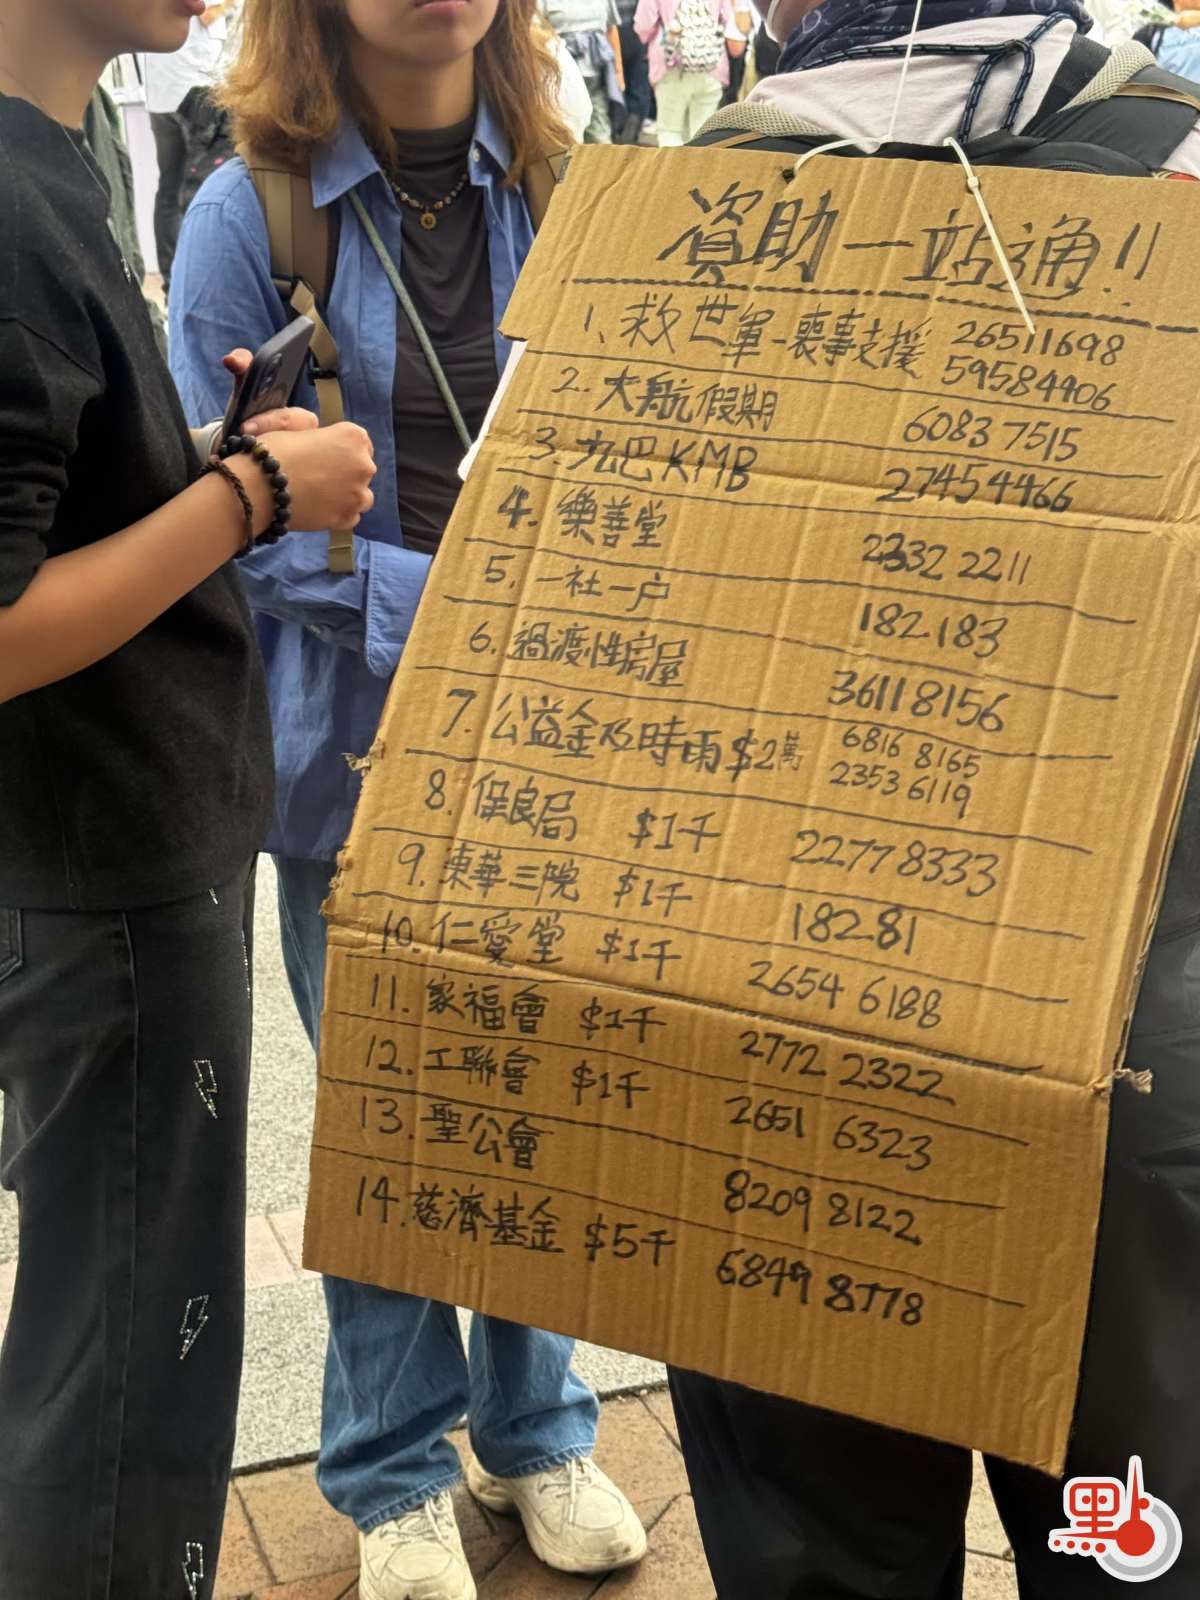 資助一站通!!
1、救世軍-喪事支援 26511698
59584406
2. 大航假期 60837515
3. 九巴KMB 27454466
4. 樂善堂 2332 2211
5. 一社一户 182.183
6. 過渡性房屋 36118156
7. 公益金及時雨$2萬 6816 8165
2353 6119
8. 保良局 $1千 22778333
9. 東華三院 $1千 18281
10. 仁愛堂 $1千 2654 6188
11. 家福會 $1千 2772 2322
12. 工聯會 $1千 2651 6323
13. 聖公會 8209 8122
14. 慈濟基金 $5千 6849 8778
點